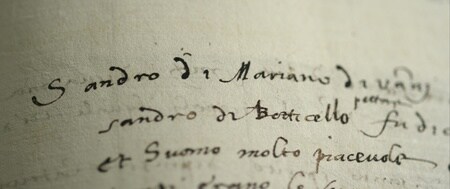 Sandro di Mariano di Vanj
sandro di Botticello pittore fu di
et Huomo molto piacevole
erano le